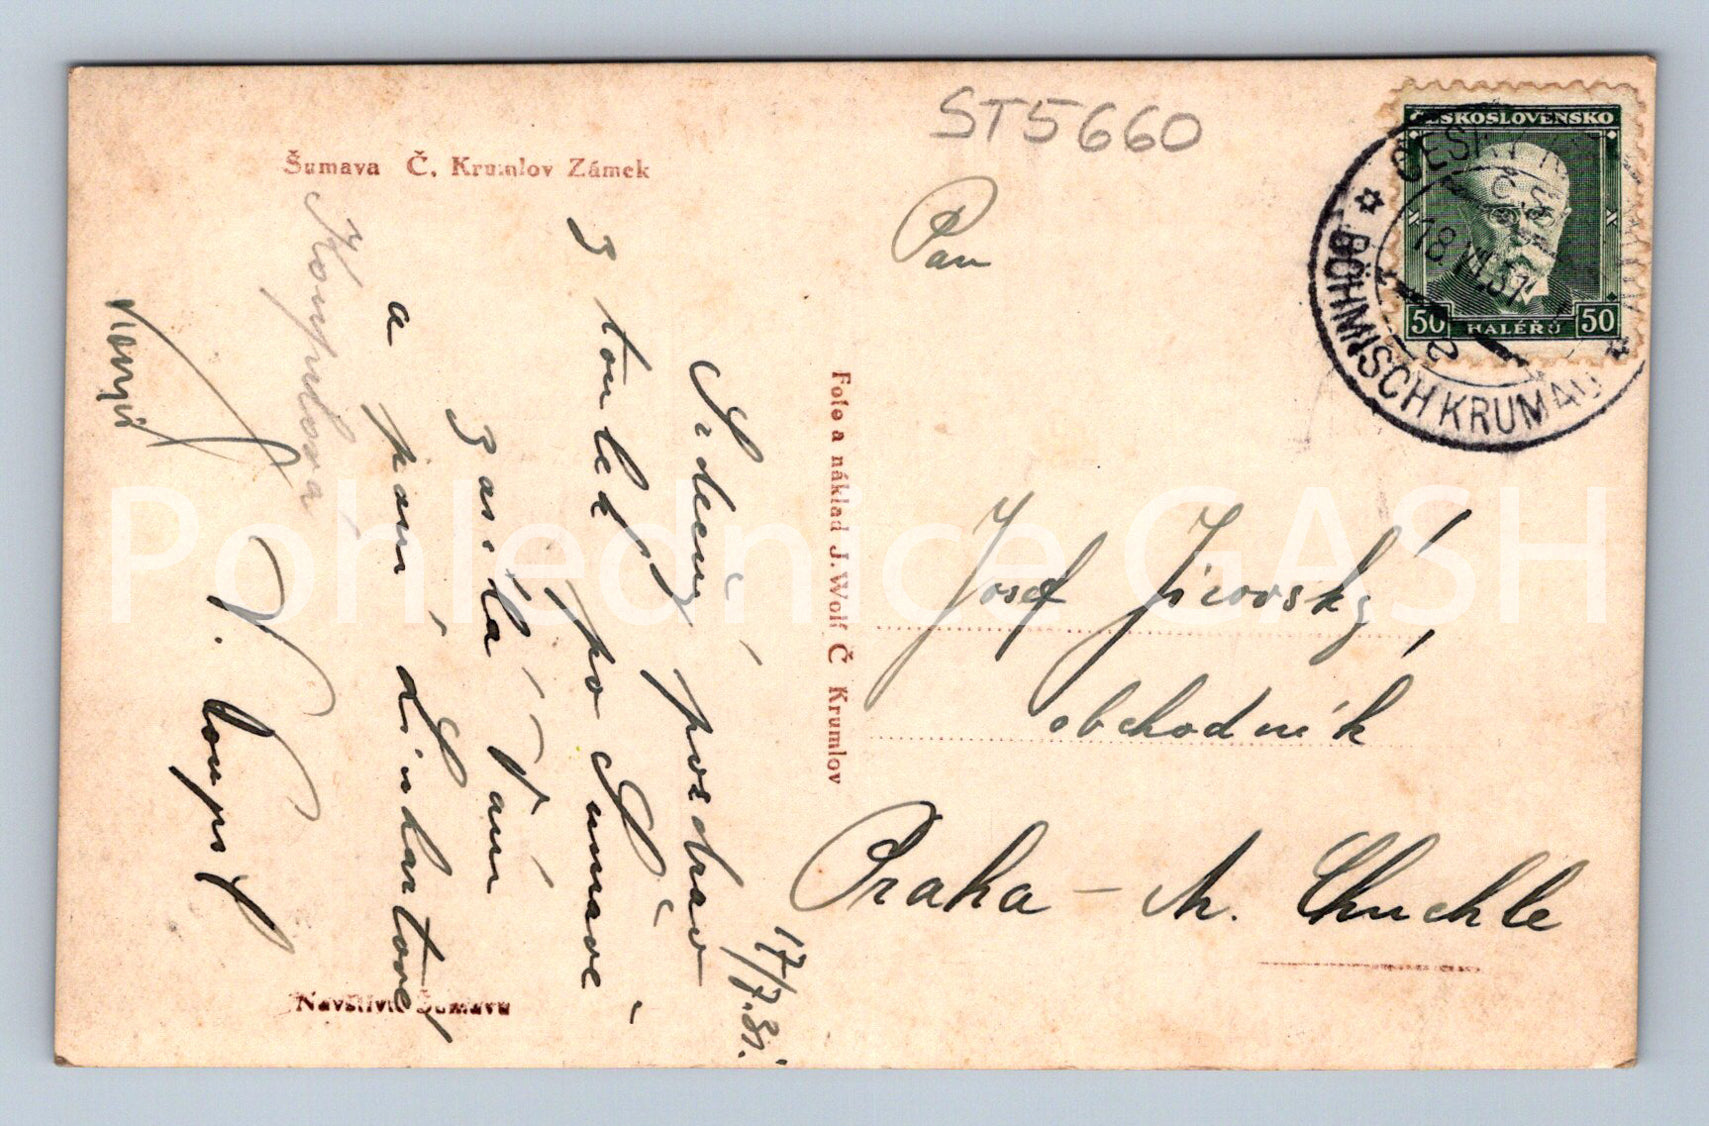 ST5660
Šumava Č. Krumlov Zámek
ČESKOSLOVENSKO
50 HALÉŘŮ 50
ČESKÝ
Č.S.R.
18.VII.31
BÖHMISCH KRUMAU
Pan
Josef Jirovský,
obchodník
Praha - M. Chuchle
Foto a náklad J. Wolf Č Krumlov
17/7.31.
Srdečný pozdrav
z toulek po Šumavě
zasílá Vám
a paní
V.
Navštivte Šumavu
Pohlednice GASH